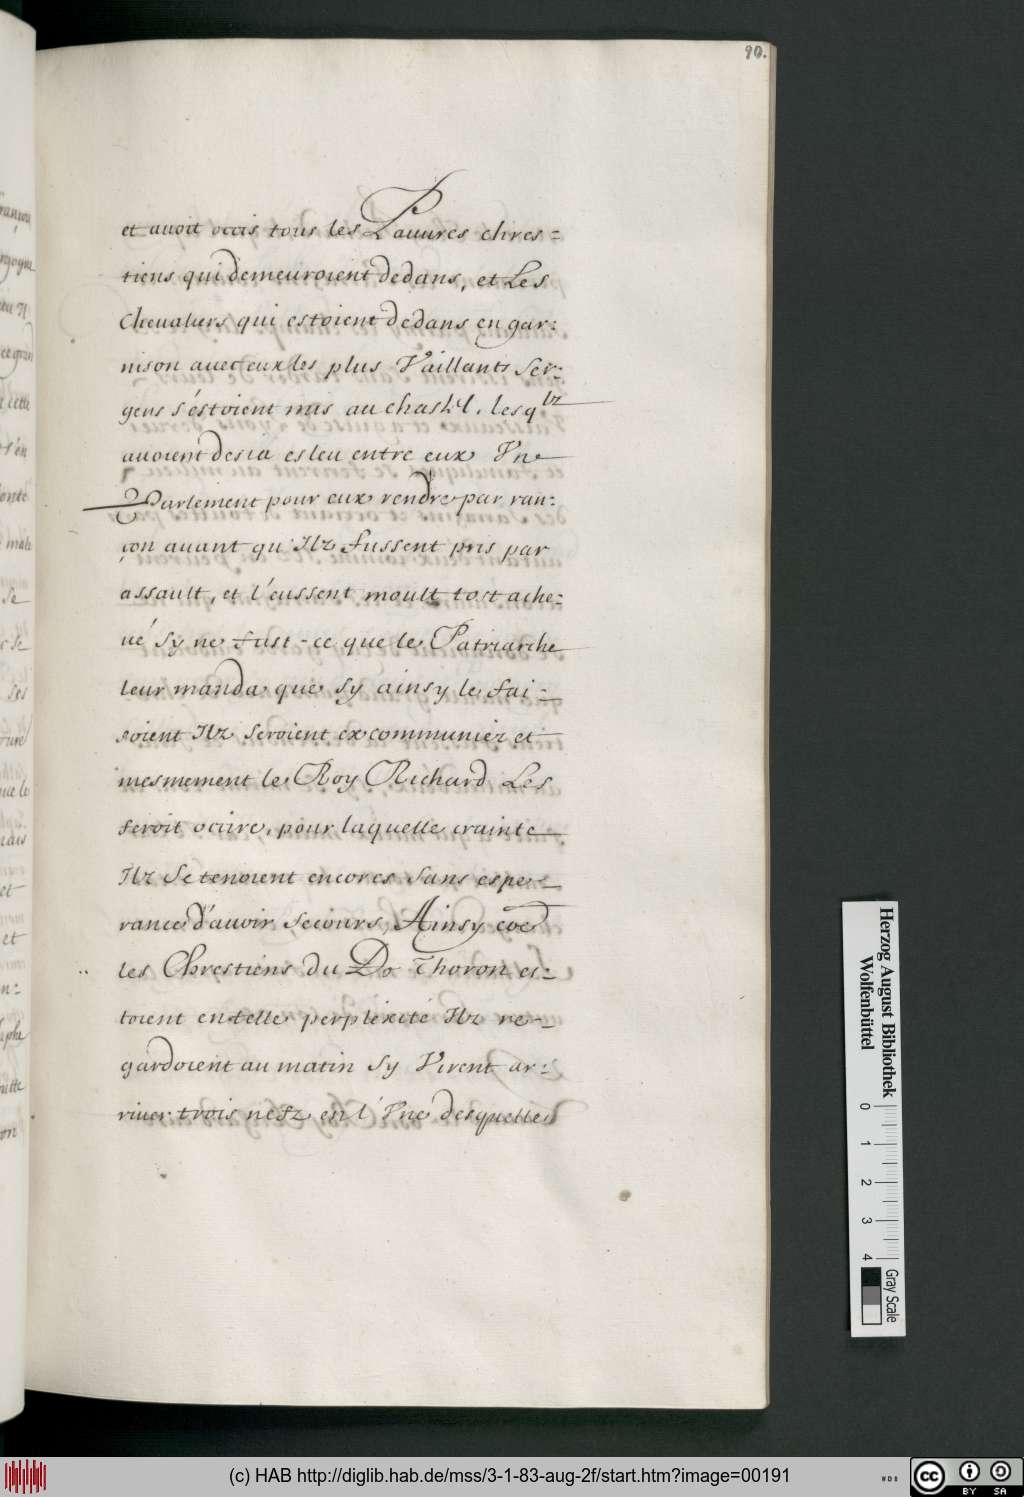 90.
et auoit occis tous les Pauures chres=
tiens qui demeuroient dedans, et Les
Cheualiers qui estoient dedans en gar=
nison auec eux les plus Vaillants Ser=
gens s'éstoient mis au chastel. lesqlz
auoient desia esleu entre eux Vne
Parlement pour eux rendre par ran=
çon auant qu'Ilz fussent pris par
assault, et l'eussent moult tost ache=
ué sy ne fust-ce que le Patriarche
leur manda que sy ainsy le fai=
soient Ilz seroient excommuniez et
mesmement le Roy Richard Les
feroit occire, pour laquelle crainte
Ilz Se tenoient encores sans espe=
rance d'auoir secours, Ainsy coe
les Chrestiens du Do Thoron es=
toient en telle perplexité Ilz re=
gardoient au matin sy Virent ar=
riuer trois nefz en l'Vne desquelles
Herzog August Bibliothek
Wolfenbüttel
0 1 2 3 4
Gray Scale
(c) HAB http://diglib.hab.de/mss/3-1-83-aug-2f/start.htm?image=00191
cc BY SA